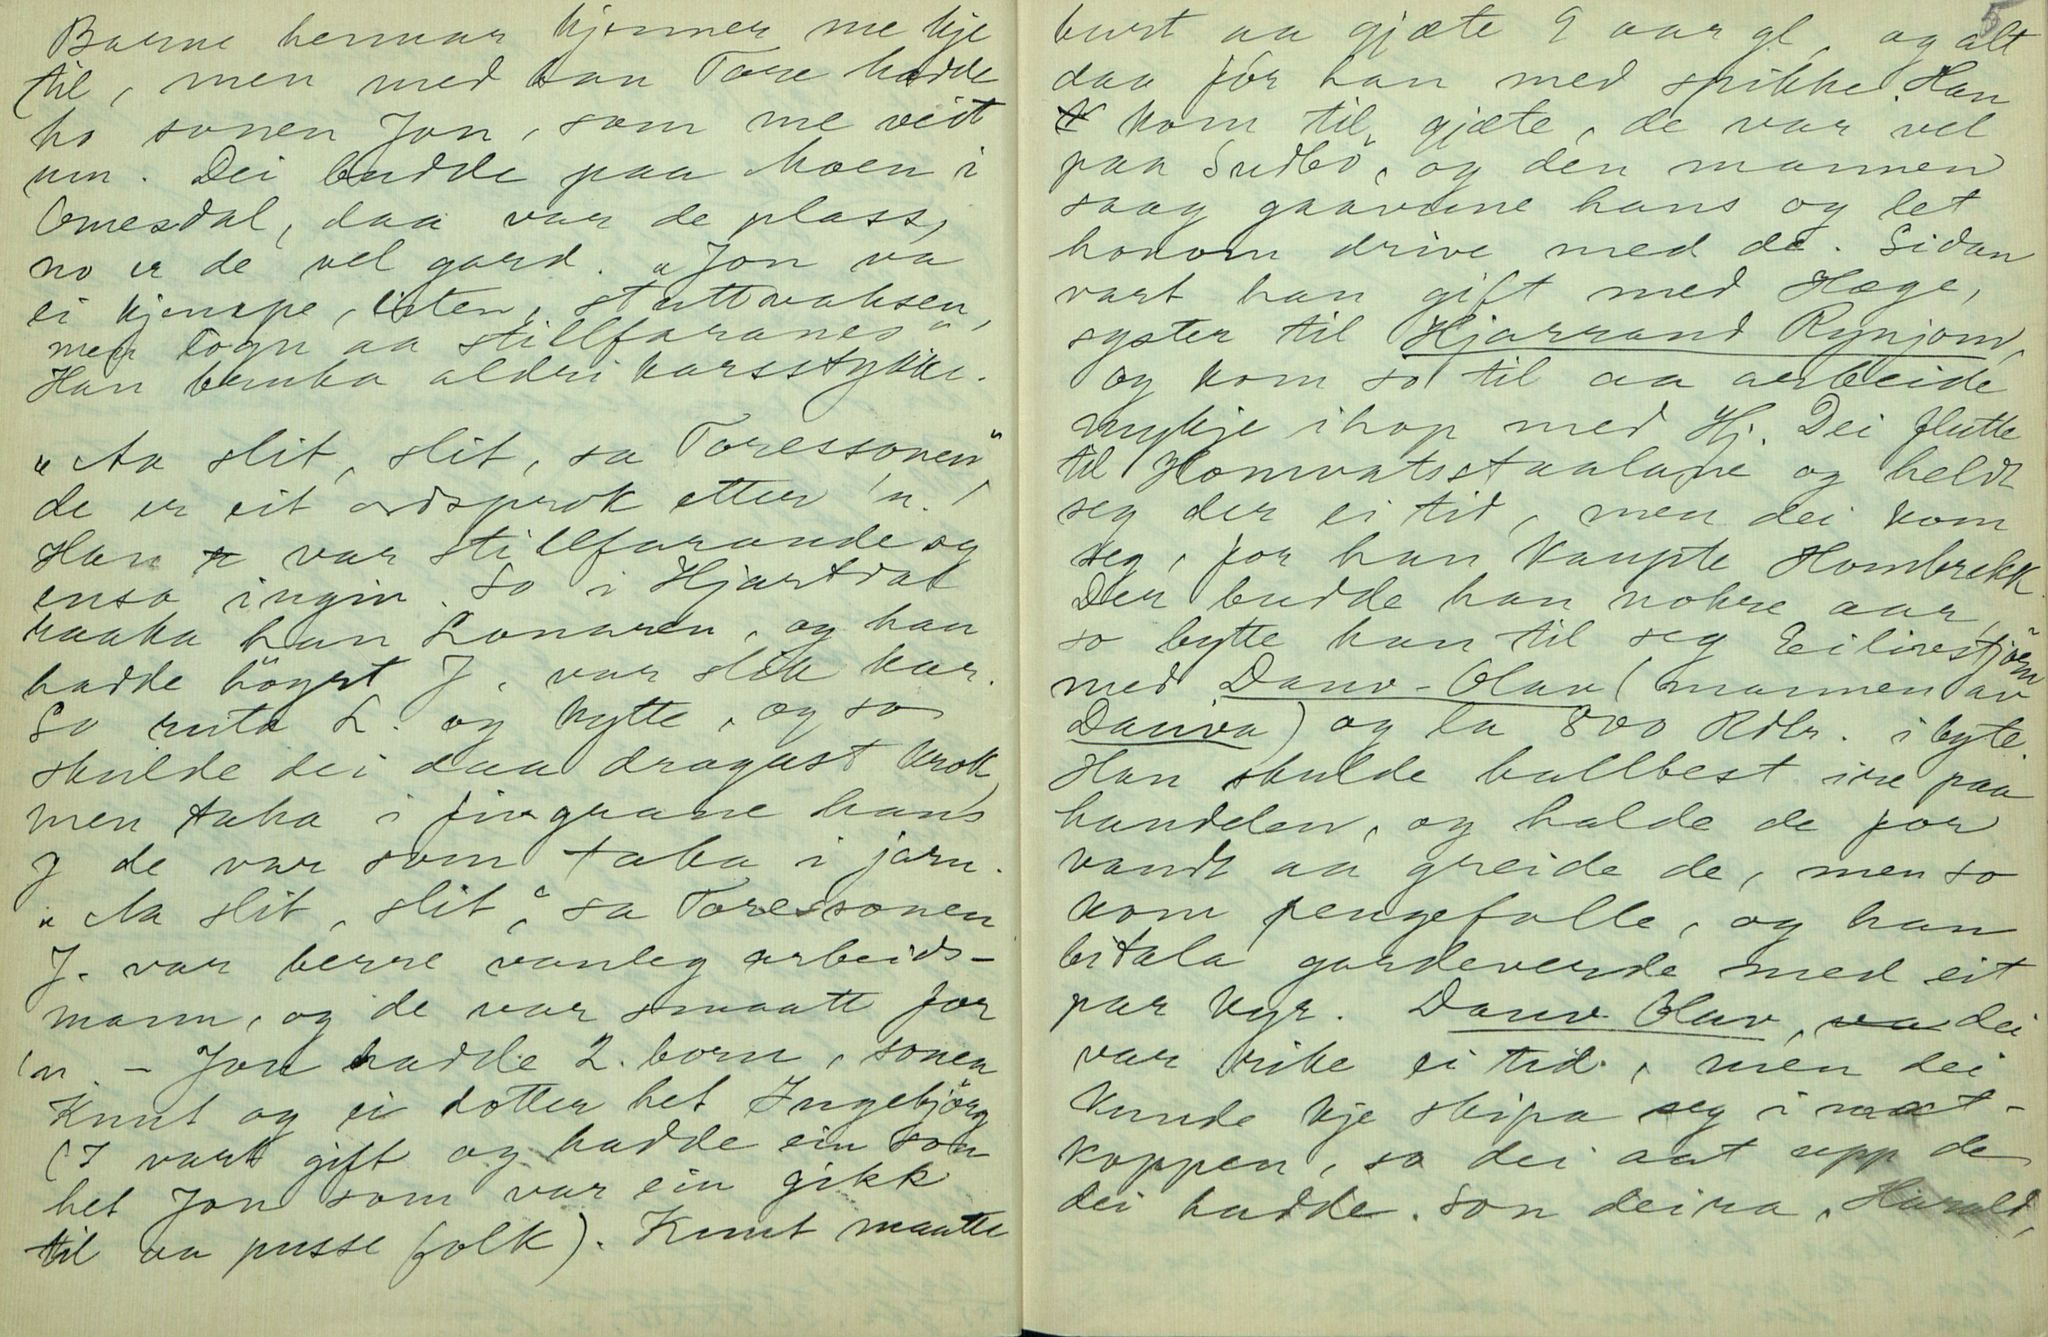 Borne hennar kjenner me kje
til, men med han Tore hadde
ho sonen Jon, som me veit
um. Dei budde paa Moen i
Omesdal, daa var de plass,
no er de vel gard. „Jon va
ei kjempe, liten, stuttvaksen,
men logn aa stillfarande“
Han bruka aldri karsstykke.
„Aa slit, slit, sa Toressonen“
de er eit ordsprok etter 'n.
Han var stillfarande og
ensa ingin. So i Hjartdal
raaka han Lonaren, og han
hadde høyrt J. var slik kar.
So ruta L. og kytte, og so
skulde dei daa dragast krok,
men taka i fingrane hans
J de var som taka i jarn.
„Aa slit, slit“, sa Toressonen
J. var berre vanleg arbeids-
mann, og de var smaatt for
'n. - Jon hadde 2. born, sonen
Knut og ei dotter het Ingebjörg
(I vart gift og hadde ein son
het Jon som var ein gikk
til aa pusse folk). Knut maatte
5
burt aa gjæte 9 aar gl, og alt
daa for han med spikke. Han
kom til gjæte, de var vel
paa Sudbö, og den mannen
saag gaavune hans og let
honom drive med de. Sidan
vart han gift med Hæge,
syster til Hjarrand Rynjom,
og kom so til aa arbeide
mykje ihop med Hj. Dei flutte
til Homvatsstaalane og heldt
seg der ei tid, men dei kom
seg, for han kaupte Hombrekk.
Der budde han nokre aar,
so bytte han til seg Eilivstjörn
med Danv-Olav (mannen av
Danva) og la 800 Rdlr. i byte
Han skulde hallbest ire paa
handelen, og halde de for
vandt aa greide de, men so
kom pengefalle, og han
bitala gardeverde med eit
par kyr. Danv Olav, dei
var rike ei tid, men dei
kunde kje skipa seg i mat-
koppen, so dei aat upp de
dei hadde. Son deira, Harald,